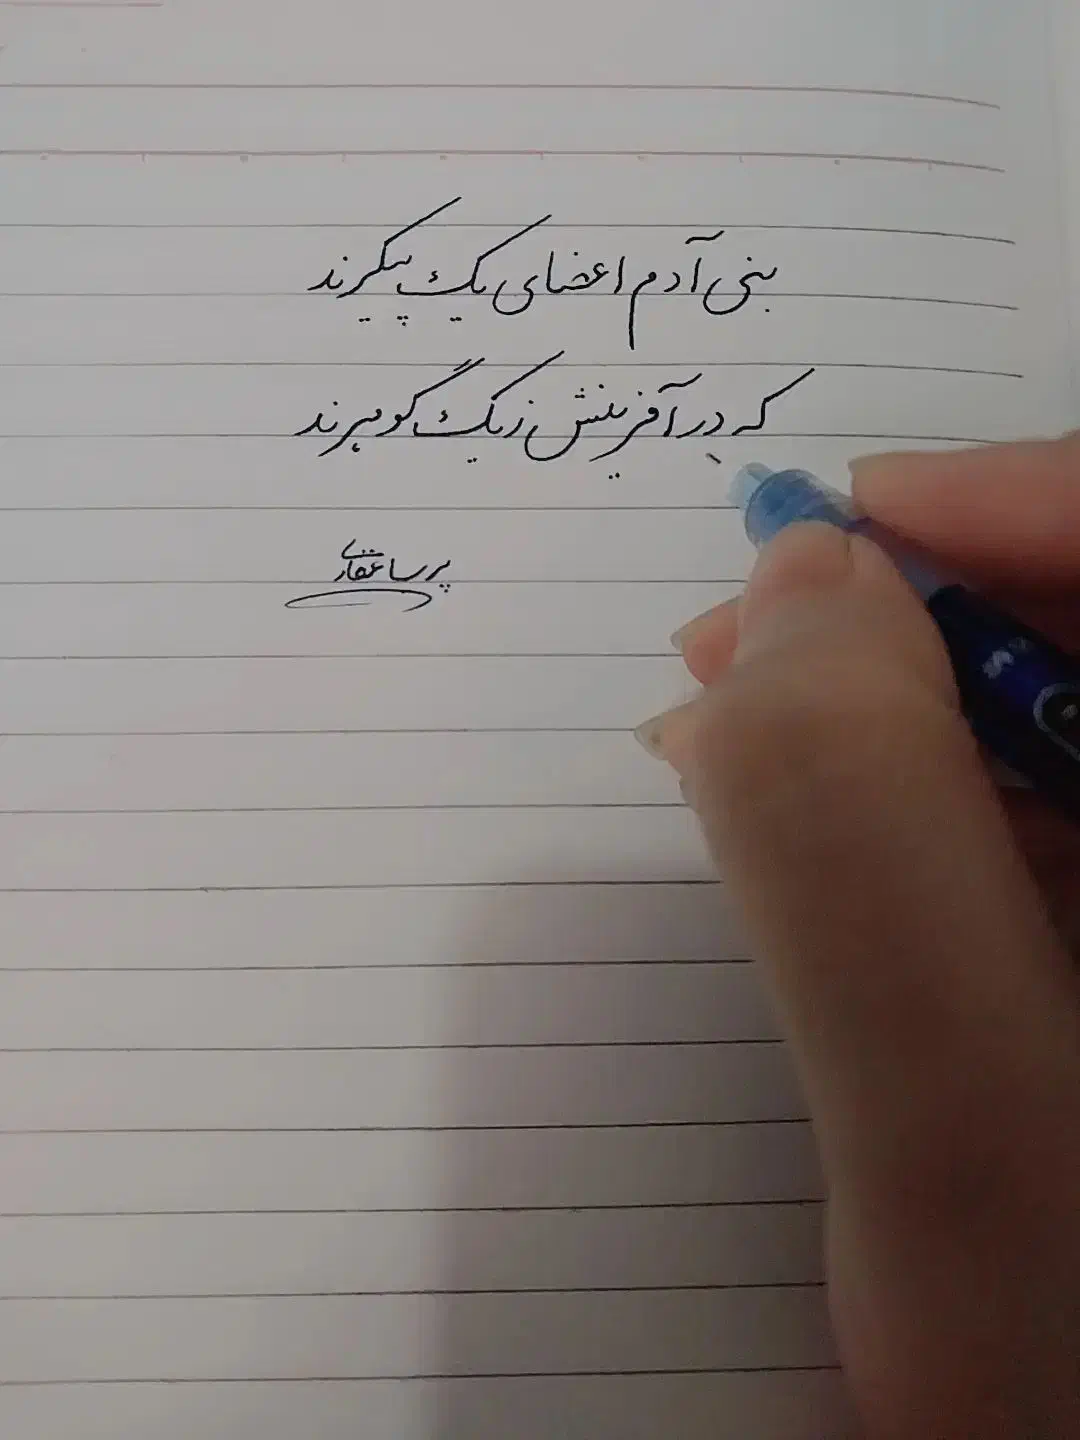 بنی آدم اعضای یک پیکرند
که در آفرینش ز یک گوهرند
پرسا غفاری